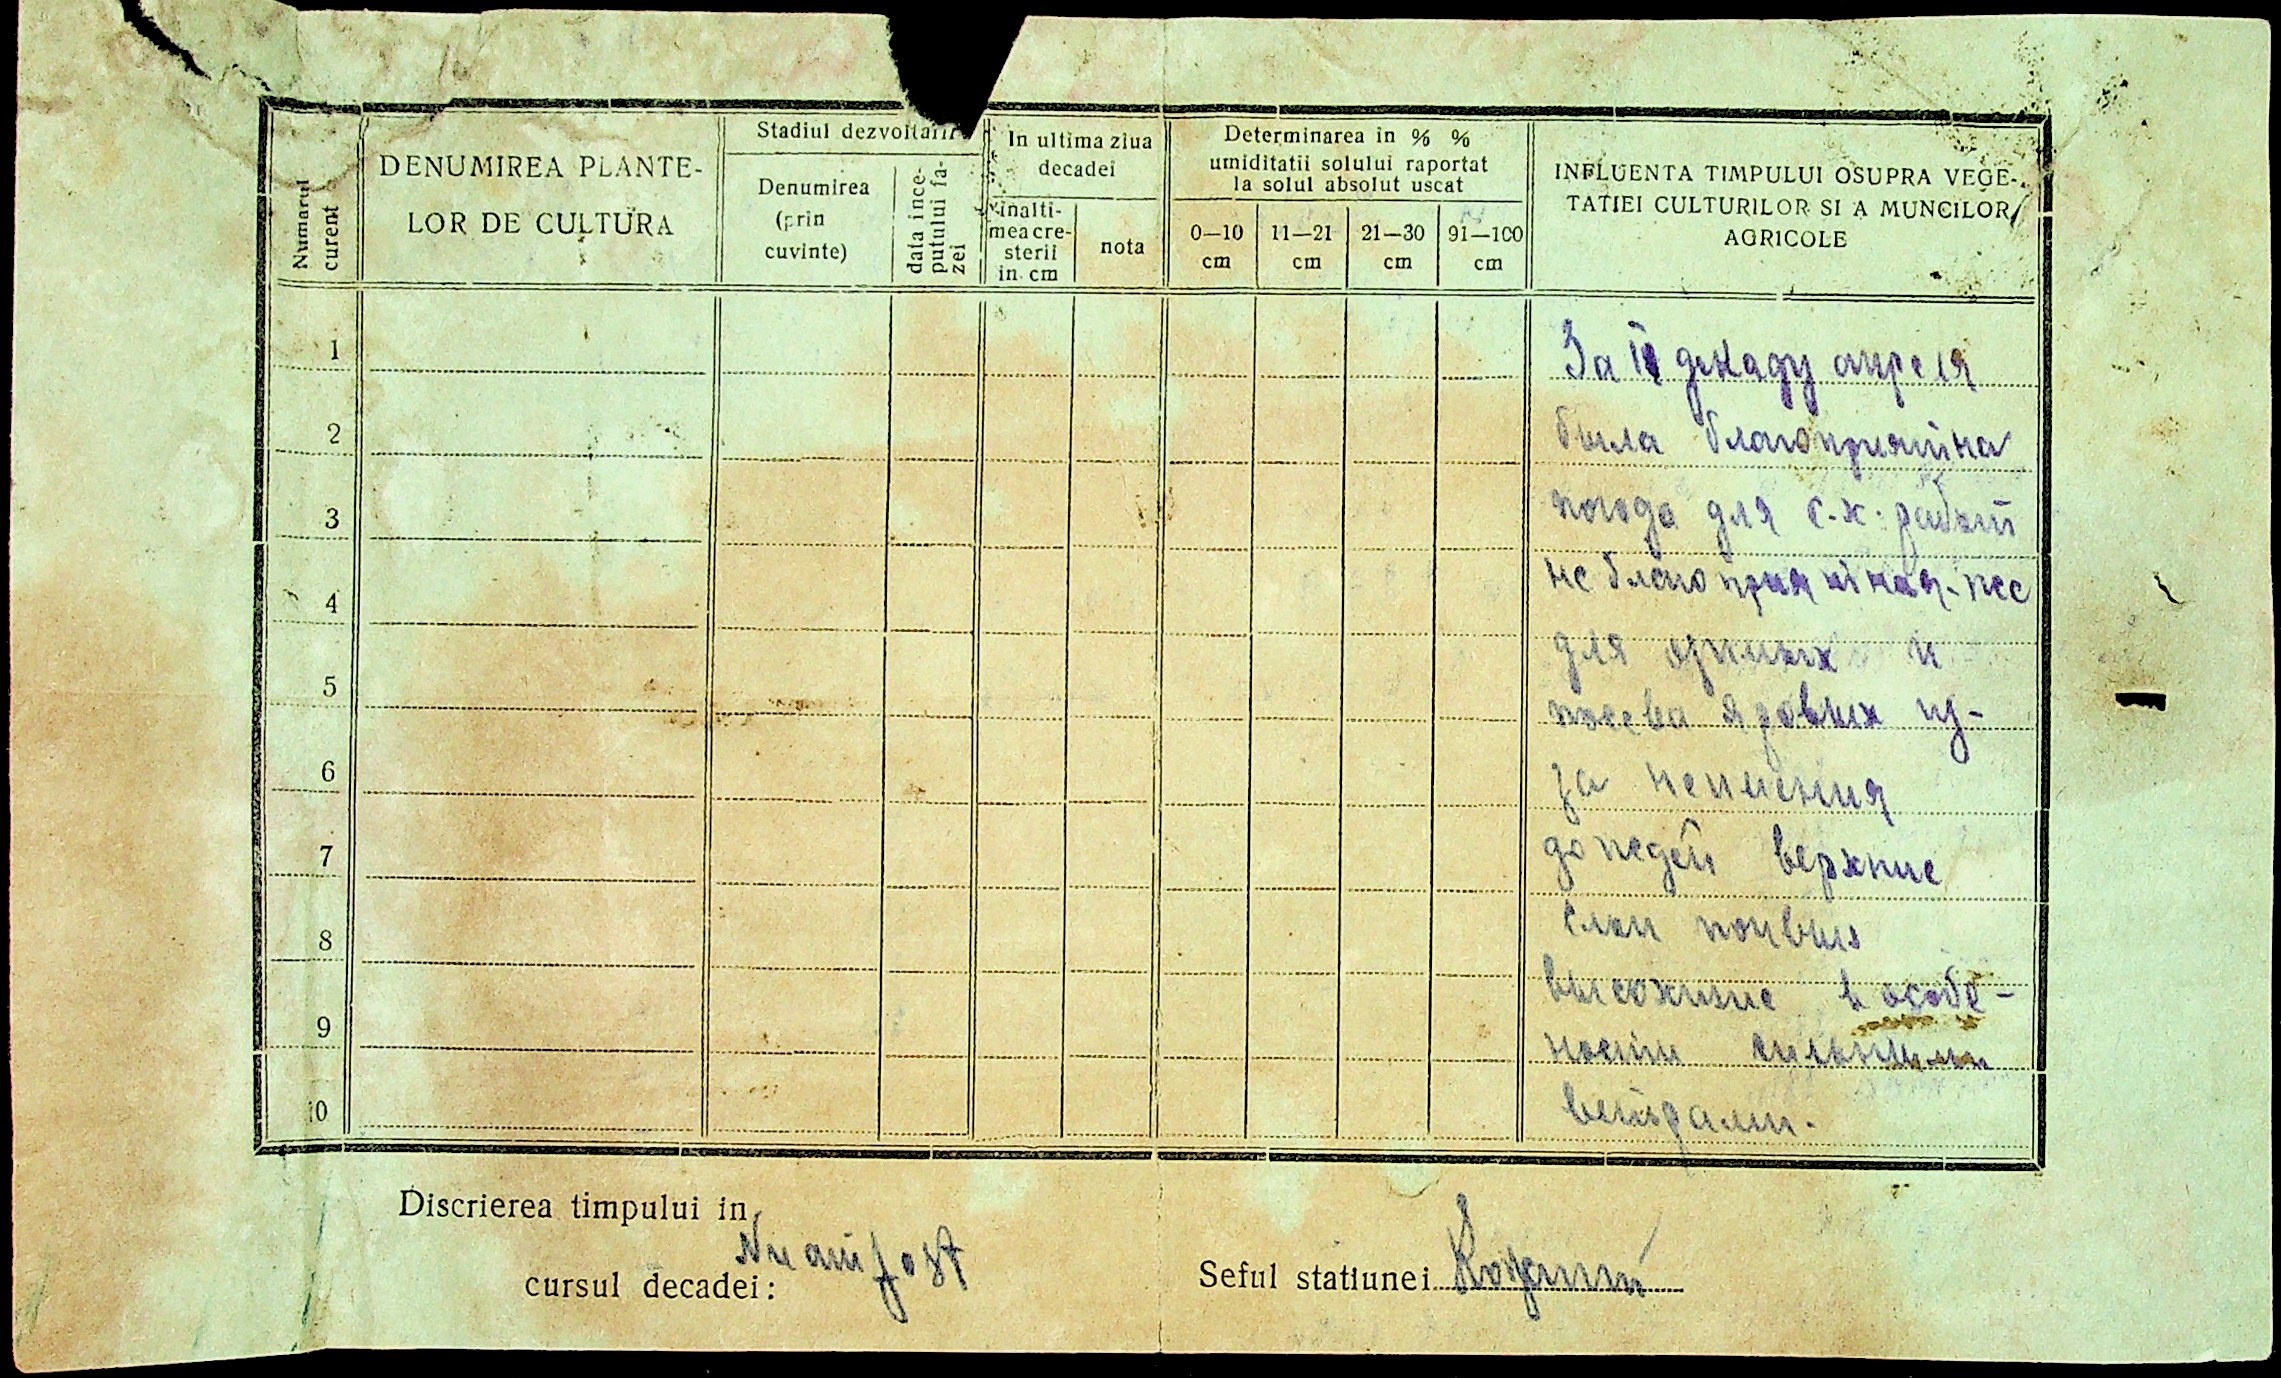 Numarul curent
DENUMIREA PLANTE-
LOR DE CULTURA
Stadiul dezvoltarii
Denumirea
(prin
cuvinte)
data ince-
putului fa-
zei
In ultima ziua
decadei
inalti-
mea cre-
sterii
in cm
nota
Determinarea in % %
umiditatii solului raportat
la solul absolut uscat
0—10
cm
11—21
cm
21—30
cm
91—100
cm
INFLUENTA TIMPULUI OSUPRA VEGE-
TATIEI CULTURILOR SI A MUNCILOR
AGRICOLE
1
2
3
4
5
6
7
8
9
10
За II декаду апреля
была благоприятна
погода для с.-х. работ
не благоприятная
для озимых и
посева яровых из-
за неимения
дождей верхние
слои почвы
высохшие в особе-
ности сильными
ветрами.
Discrierea timpului in
cursul decadei:
Nu au fost
Seful statiunei